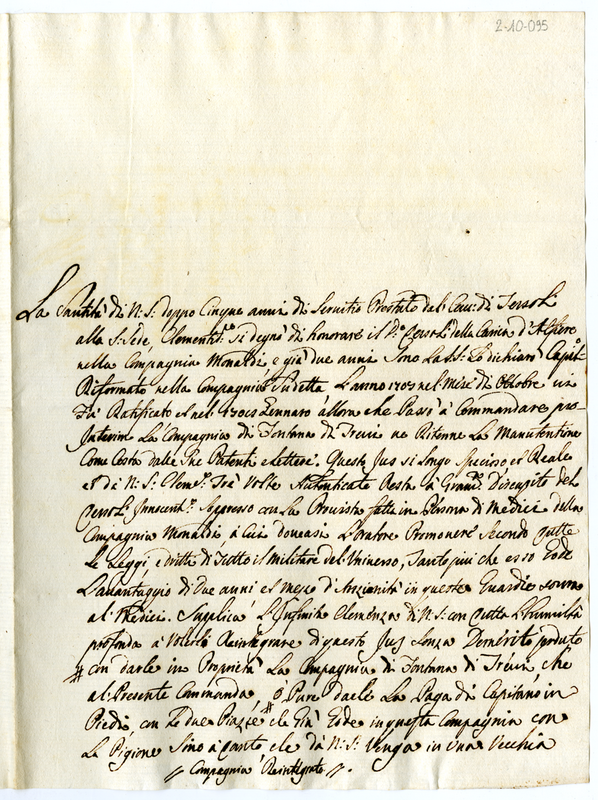 2-10-095
La Santità di N: S: doppo Cinque anni di Servitio Prestato dal Cau: di
alla S: Sede, Clement:º si degnò di honorare il d:º della Carica d'Alfiere
nella Compagnia Monaldi, e già due anni sono La S: Lo dichiarò Capit:º
Riformato nella Compagnia sudetta L'anno 1703 nel mese di Ottobre
Fù Ratificato el Gennaro allora che Passò à Commandare pro
Interim La Compagnia di Fontana di Trevi ne Ritenne La Manutentione
Come Costa dalle Sue Patenti e Lettere. Questo Jus si longo specioso et Reale
et dà N: S: Clem: Trè Volte Autenticato Resta in Grand: Discapito del
Innocent: Soppresso con La Provista fatta in Persona di Medici della
Compagnia Monaldi, à Cui doveasi L'Oratore Promovere Secondo tutte
Le Leggi, e dritti di Tutto il Militare del Universo, Tanto più che esso Gode
L'avantaggio di Due anni et mezo d'Anzianità in queste Guardie sovra
al Medici. Supplica L'Infinita Clemenza di N: S: con tutta L'Humiltà
profonda à Volerlo Reintegrare di questo Jus senza Demerito perduto
con darle in Proprietà La Compagnia di Fontana di Trevi che
al Presente Commanda, ò Pure darle La Paga di Capitano in
Piedi, con Le due Piazze che Già Gode in questa Compagnia con
La Pigione Sino à tanto che dà N: S: Venga in Una Vecchia
Compagnia Reintegrato.